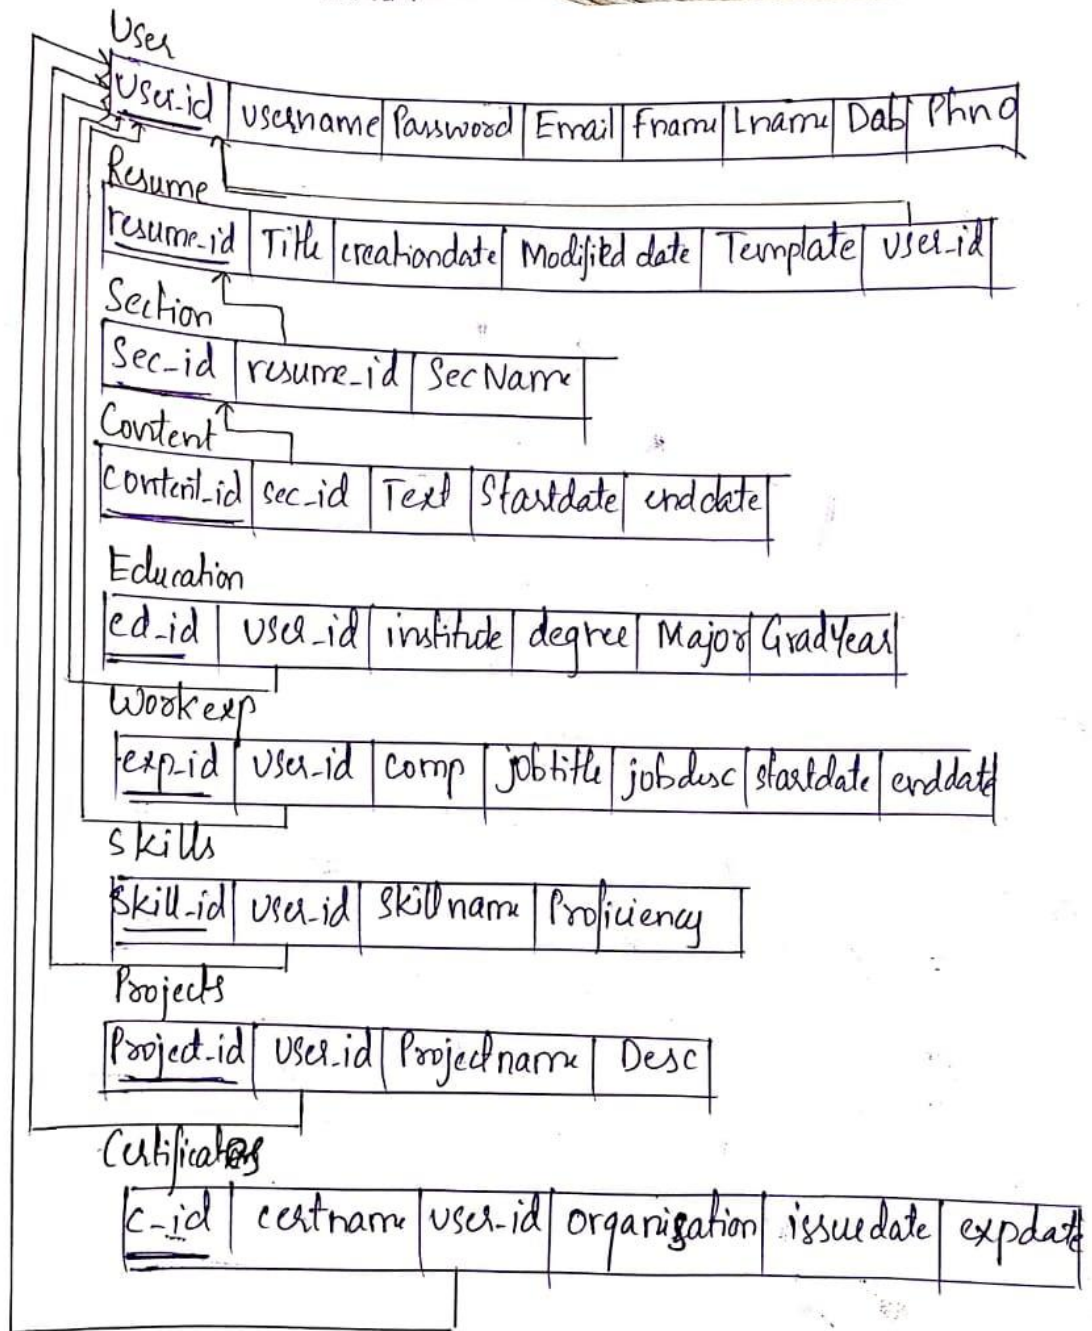 User
User_id username Password Email Fname Lname Dob Phno
Resume
resume_id Title creationdate Modified date Template user_id
Section
Sec_id resume_id SecName
Content
Content_id sec_id Text Startdate enddate
Education
ed_id user_id institude degree Major GradYear
Workexp
exp_id user_id comp jobtitle jobdesc startdate enddate
Skills
Skill_id user_id Skillname Proficiency
Projects
Project_id user_id Projectname Desc
Certificates
c_id certname user_id organization issuedate expdate